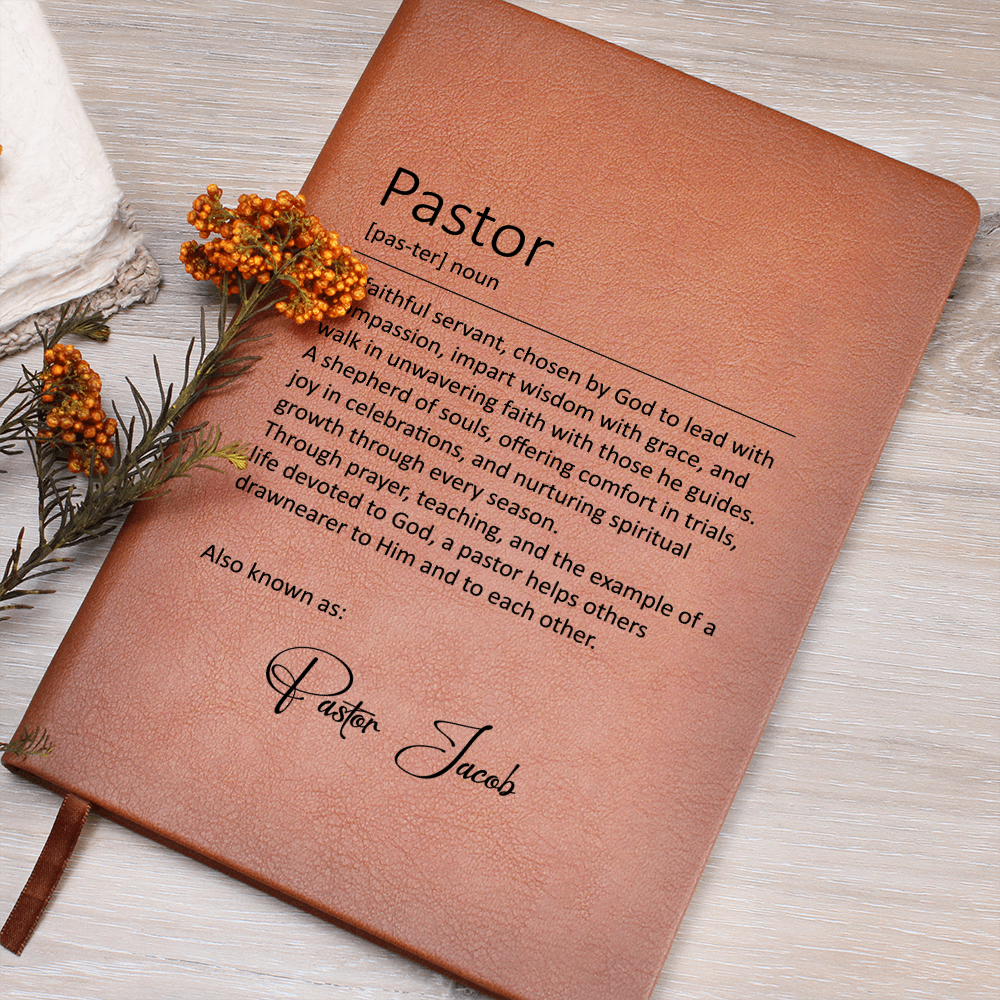 Pastor
[pas-ter] noun
faithful servant, chosen by God to lead with
compassion, impart wisdom with grace, and
walk in unwavering faith with those he guides.
A shepherd of souls, offering comfort in trials,
joy in celebrations, and nurturing spiritual
growth through every season.
Through prayer, teaching, and the example of a
life devoted to God, a pastor helps others
drawnearer to Him and to each other.
Also known as:
Pastor Jacob